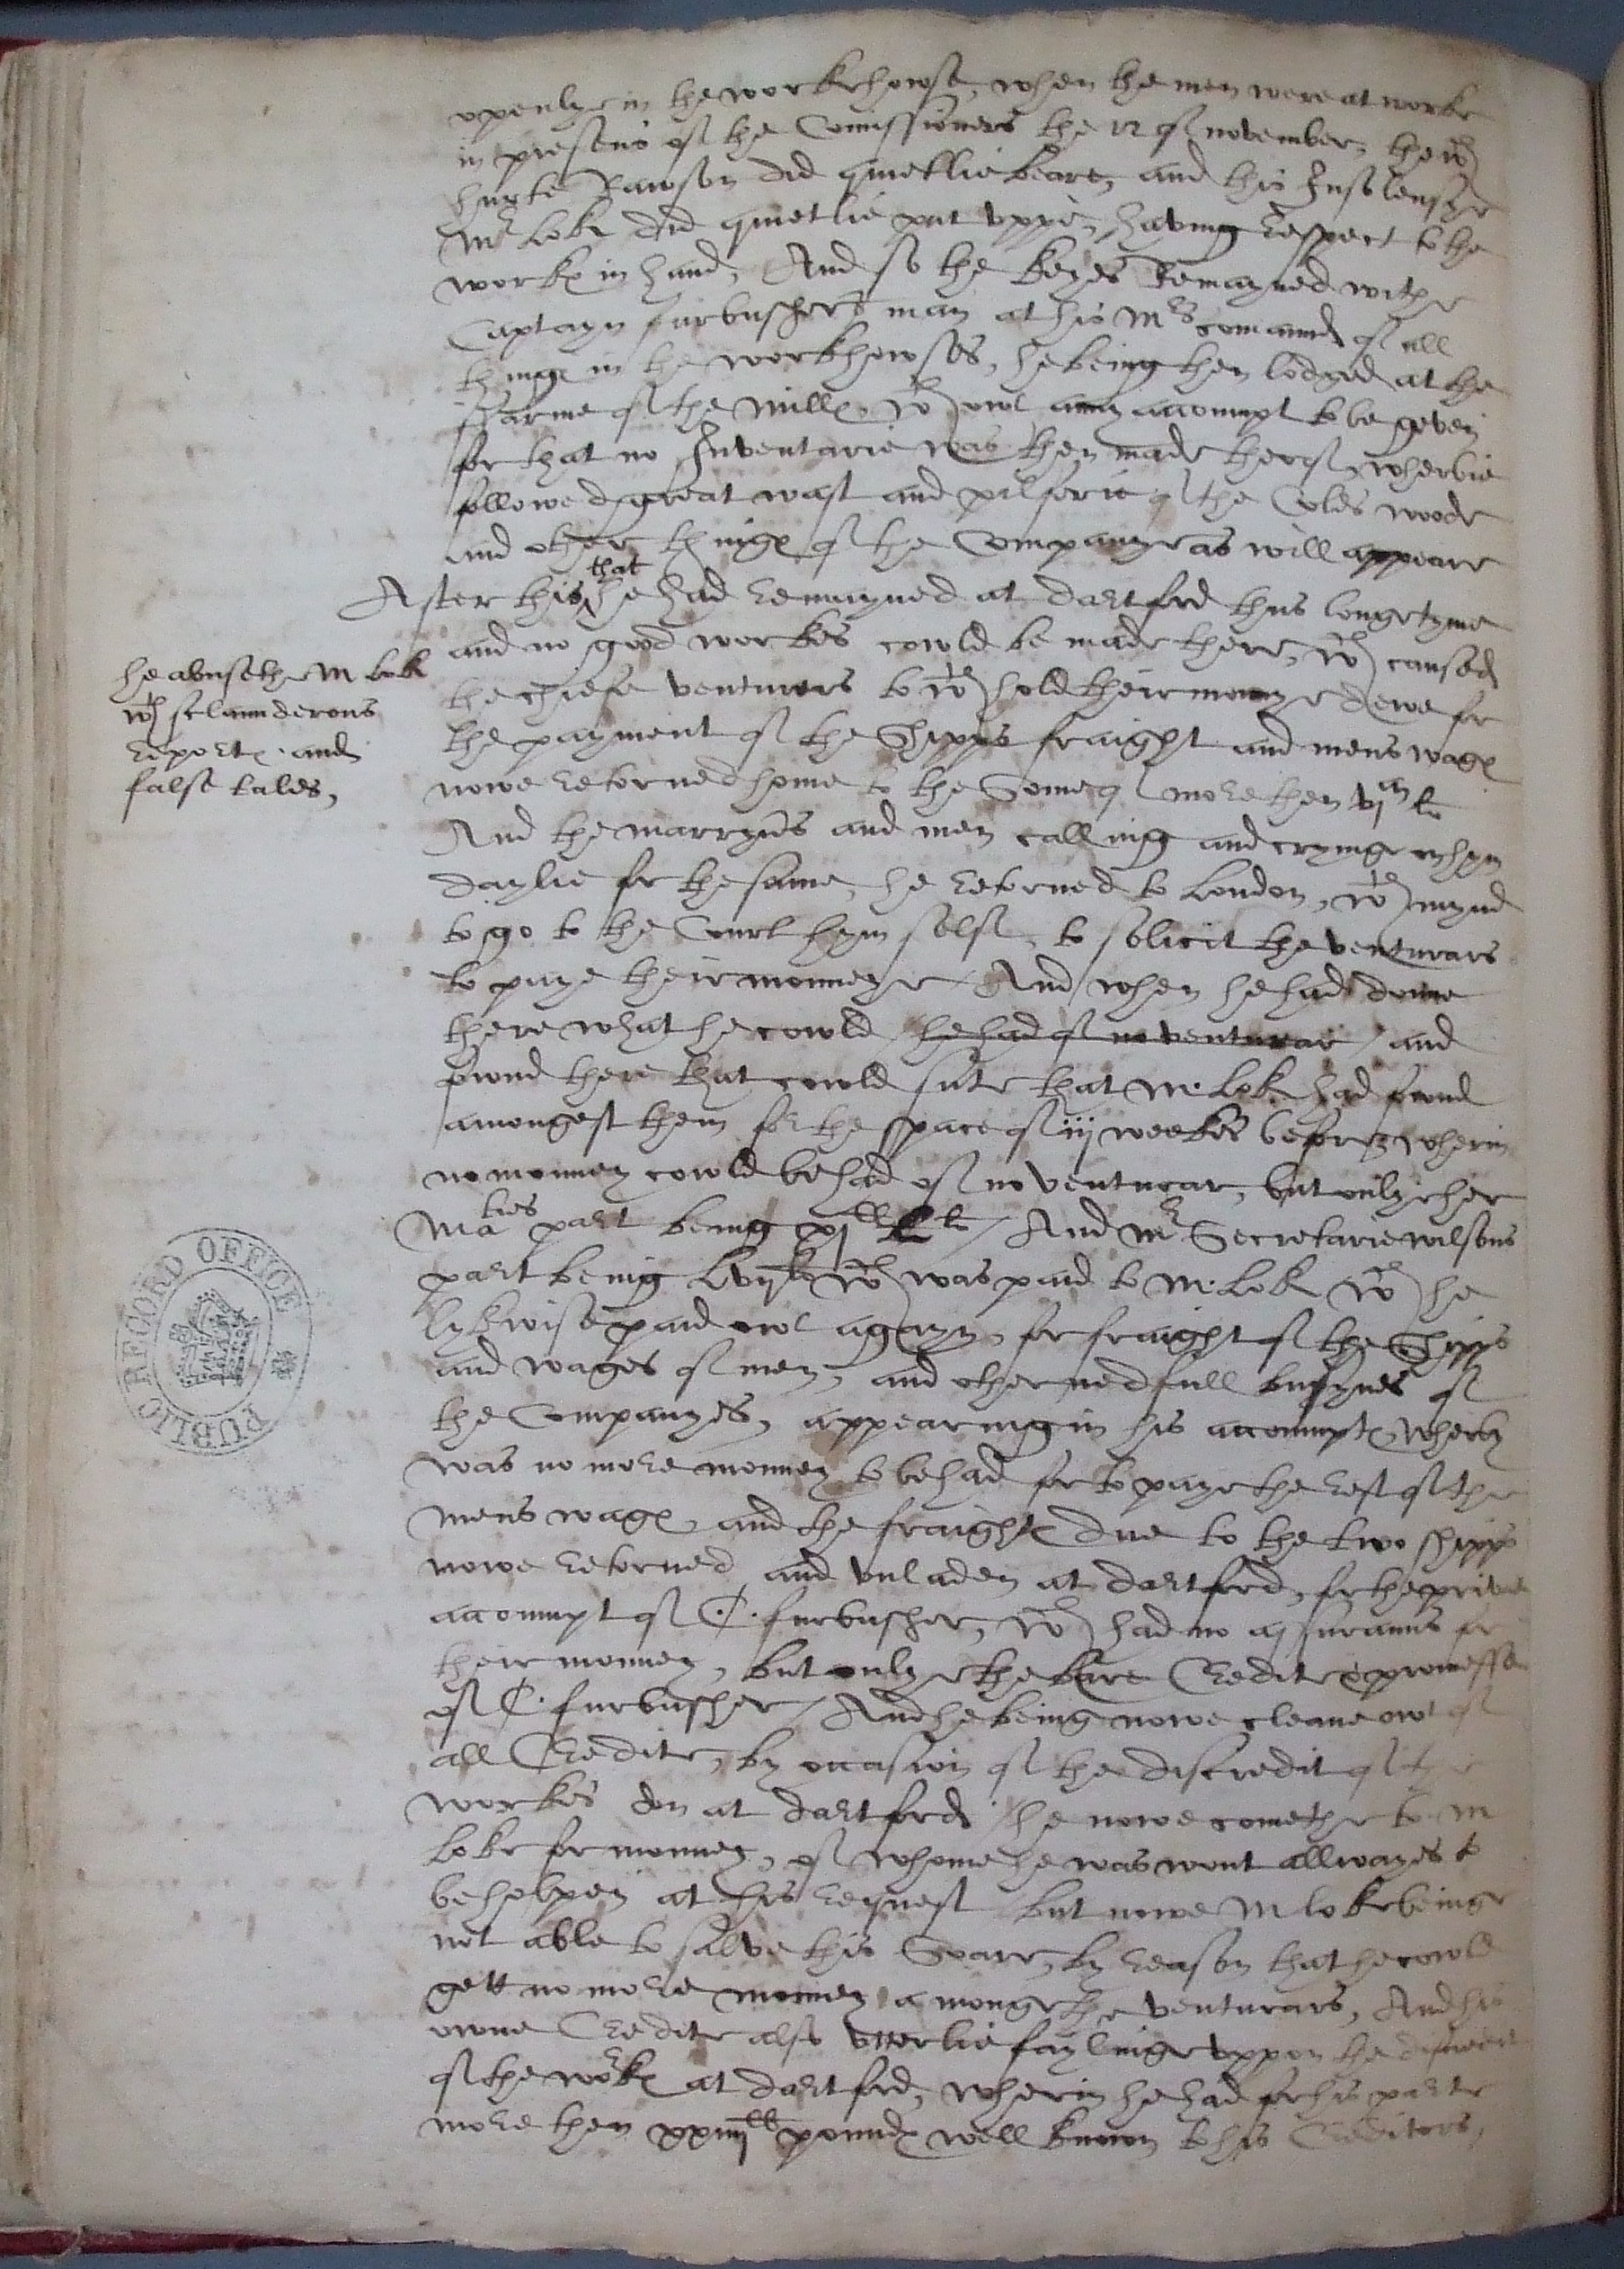 openlye in the workehowse, when the men were at worke
in presens of the Comissioners the 12 of november, the wch
hurte Rawson did quietlie beare, and this Insolensye
Mr Lok did quietlie put vppe, having respect to the
work in hand, And so the keyes remayned withe
Captayn furbushers man at his Mrs comaund of all
things in the workhowses, he being then lodged at the
ffarme of the mills, wthowt any accompt to be geven
for that no Inventarie was then made therof, wherbie
followed great wast and pilferie of the Coles woode
and other things of the Companye as will appeare
After this that he had remayned at dartford thus longe tyme
and no good workes cowld be made there, wch caused
the chiefe venturers to wthhold their monnye dewe for
the payment of the Shipps fraight and mens wages
nowe retorned home to the Some of more then vj m li
And the marryners and men calling and cryinge on hym
daylie for the same, he retorned to London, wth mynd
to go to the Court hym self, to solicit the venturars
to paye their monneye And when he had donne
there what he cowld he had of no venturar / and
fownd there that cowld sute that M. Lok had fownd
amongest them for the space of iij weekes before, wherin
no monney cowld be had of no venturar, but onlye her
Maties part being xj C li / And Mr Secretarie wilsons
part being Lvij li wch was paid to M. Lok wch he
lykwise paid owt agayn, for fraight of the Shipps
and wages of men, and other nedfull busynes of
the Companyes, appearing in his accompts, wherby
was no more monney to be had for to paye the rest of the
mens wages and the fraight due to the two shipps
nowe retorned and vnladen at dartford, for the privat
accompt of C. furbusher, wch had no assurauns for
their monney, but onlye the bare Credite & promesse
of C. furbusher / And he being nowe cleane owt of
all Credite, by occasion of the discredit of the
workes don at dartford, he nowe comethe to M
Loke for monney, of whome he was wont allwayes to
be holpen at his request but nowe M loke beinge
not able to salve this Soare, by reason that he cowld
gett no more monney amonge the venturars, And his
owne Credite also vtterlie faylinge vppon the discredit
of the works at dartford, wherin he had for his parte
more then xxiij C pounds well knowen to his Creditors,
he abusethe M Lok
wth sclaunderous
reports and
false tales,
PUBLIC RECORD OFFICE